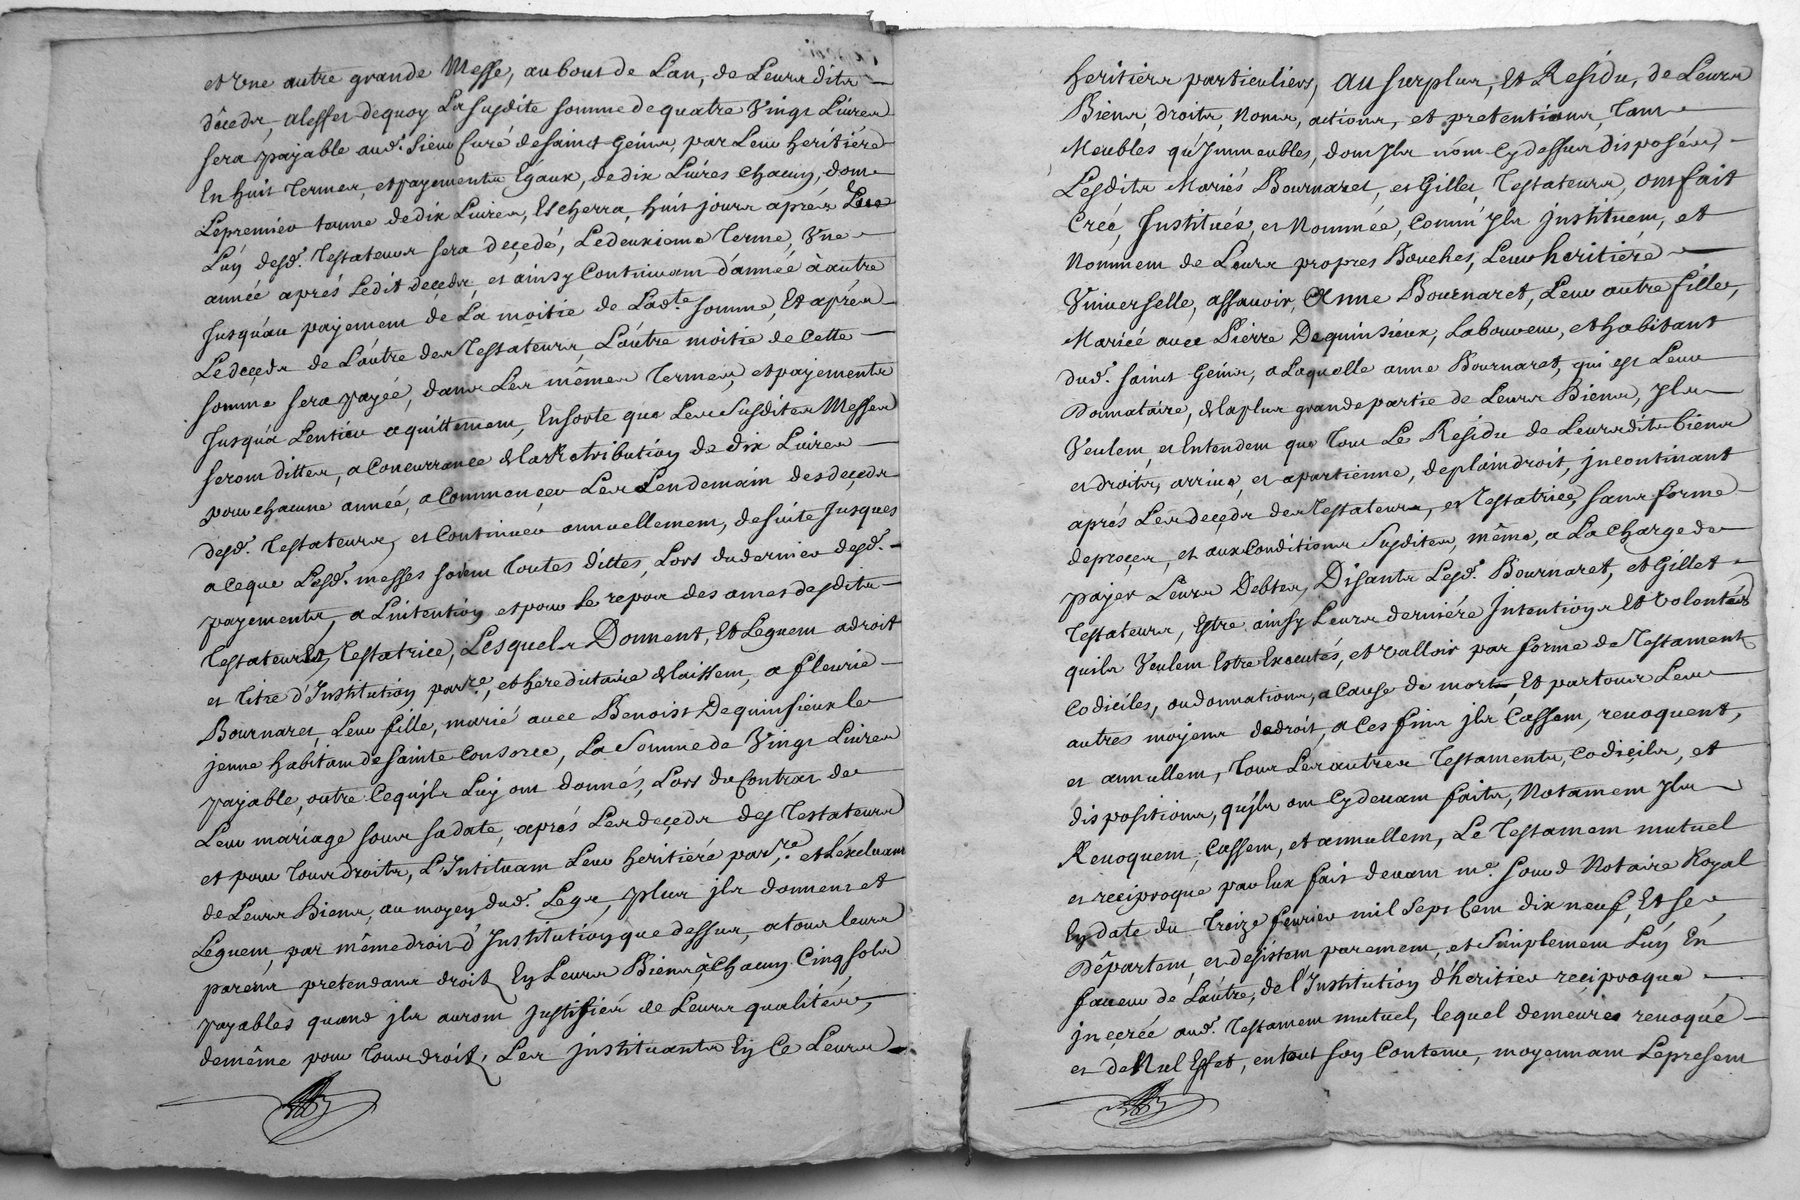 et Une autre grande Messe, au bout de L'an, de Leurs dits
déceds, a leffet dequoy La susdite somme de quatre Vingt Livres
sera payable aud. Sieur Curé de sainct Genis, par Leur heritiére
En huit Termes, et payements Egaux, de dix Livres chacun, dont
Le premier terme de dix Livres, Escherra, huit jours aprés Que
L'un desd. Testateurs sera decedé, Le deuxieme Terme, Une
année aprés Ledit deceds, et ainsy Continuant d'année à autre
Jusqu'au payement de La moitié de Lad.te somme, Et aprés
Le deceds de L'autre des Testateurs, L'autre moitié de cette
somme sera payée, dans Les mêmes Termes, et payements
Jusqu'a L'entier aquittement, Ensorte que Les Susdites Messes
seront dittes, a Concurrance de la Rétribution de dix Livres
pour chacune année, a Commencer Les Lendemain des deceds
desd. Testateurs, et Continuer annuellement, de suite Jusques
a ce que Lesd. messes soient Toutes dittes, Lors du dernier desd.
payements, a L'intention et pour Le repos des ames desdits
Testateurs Et Testatrice, Lesquels Donnent, Et Leguent a droit
et Titre d'Institution par.re, et héreditaire delaissent, a fleurie
Bournaret, Leur fille, marié avec Benoist Dequinsieux le
jeune habitant de Sainte Consorce, La Somme de Vingt Livres
payable, outre Ce qu'ils Luy ont donnés, Lors du Contrat de
Leur mariage sous sa date, aprés Les deceds des Testateurs
et pour Tous droits, L'Intituant Leur heritiére par.re et L'éxcluant
de Leurs Biens, au moyen dud. Legs, plus ils donnent et
Leguent, par même droit d'Institution que dessus, a tous leurs
parents pretendans droit En Leurs Biens à Chacun Cinq sols
payables quand ils auront Justifiér de Leurs qualitées,
de même pour Tous droit, Les jnstituants En Ce Leurs
heritiers particuliers, Au surplus, Et Residu, de Leurs
Biens, droits, Noms, actions, et pretentions, Tant
Meubles qu'Jmmeubles, dont Jls n'ont Cy dessus disposées,
Lesdits Mariés Bournaret, et Gillet Testateurs, ont fait
Creé, Justituée, et Nommée, Comm'Jls jnstituent, et
Nomment de Leurs propres Bouches, Leur heritiére
Universelle, assavoir, Anne Bournaret, Leur autre fille,
Mariée avec Pierre Dequinsieux, Laboureur, et habitant
dud. sainct Genis, a Laquelle anne Bournaret, qui est Leur
Donnataire, de la plus grande partie de Leurs Biens, Jls
Veulent, et Entendent que Tout Le Residu de Leurs dits biens
et droits, arrive, et apartienne, de plain droit, jncontinant
aprés Les deceds des Testateurs, et Testatrice, sans forme
de procer, et aux Conditions Susdites, même, a La Charge de
payer Leurs Debtes, Disants Lesd. Bournaret, et Gillet
Testateurs, Estre ainsy Leurs derniére Jntentions Et Volontées
quils Veulent Estre Executés, et Valloir par forme de Testament
Codiciles, ou donnations, a Cause de mort, Et par tous Leur
autres moyens de droit, a Ces fins jls Cassent, revoquent,
et annullent, Tous Les autres Testaments, Codicils, et
dispositions, qu'jls ont Cy devant faits, Notament Jls
Revoquent, Cassent, et annullent, Le Testament mutuel
et reciproque par Eux fait devant m.e Notaire Royal
En date du Treize fevrier mil Sept Cent dix neuf, Et se
Départent, et desistent parement, et Simplement L'un En
faveur de L'autre, de L'Institution d'heritier reciproque
jncerée aud. Testament mutuel, lequel demeure revoqué
et de Nul Effet, en tout son Contenu, moyennant Le present